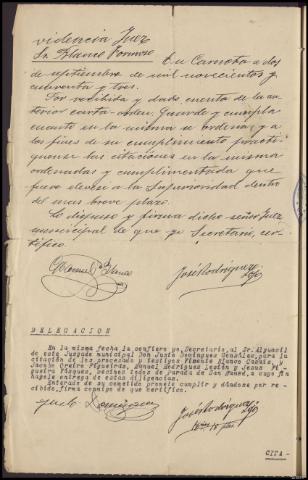 videncia Juez
Sr. Blanco Formoso
En Carnota a dos
de septiembre de mil novecientos
cuarenta y tres.
Por recibida y dada cuenta de la an-
terior carta-orden, guarde y cumpla
cuanto en la misma se ordena, y a
los fines de su cumplimiento practi-
quense las citaciones en la misma
ordenadas y cumplimentada que
fuere elevese a la Superioridad dentro
del mas breve plazo.
Lo dispuso y firma dicho señor Juez
municipal de que yo Secretario, cer-
tifico.
Manuel Blanco
José Rodríguez
DELEGACION
En la misma fecha la confiere yo, Secretario, al Sr. Alguacil
de este Juzgado municipal Don Justo Dominguez Gonzalez, para la
citación de los procesado y testigos Vicente Blanco
Jacobo Creire Figueiras, Manuel Rodriguez Leston y Jesus
vecinos todos de Parada de San Mamed, a cuyo fin
hagole entrega de estas diligencias.
Enterado de su cometido promete cumplir y dándose por re-
cibido, firma conmigo de que certifico.
Justo Dominguez
José Rodríguez
CITA-